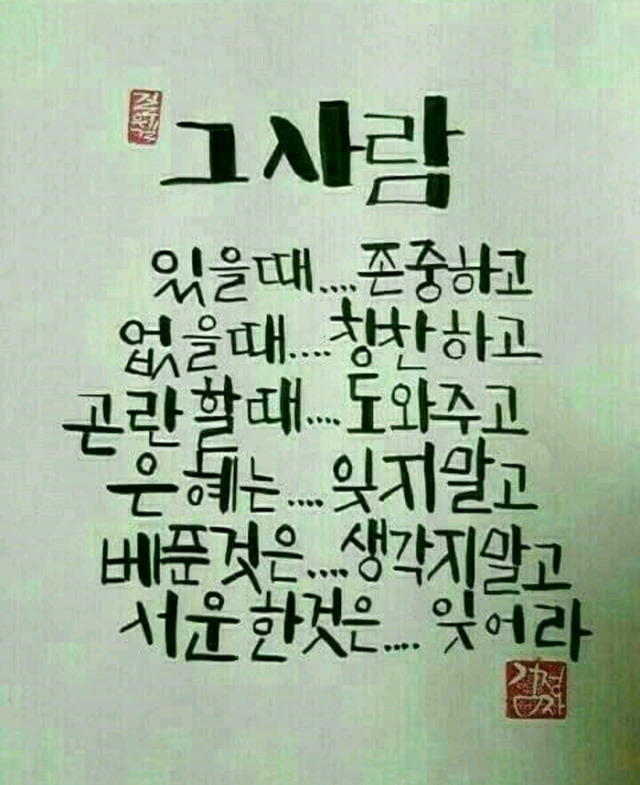 그 사람
있을때....존중하고
없을때....칭찬하고
곤란할때....도와주고
은혜는....잊지말고
베푼것은....생각지말고
서운한것은.... 잊어라